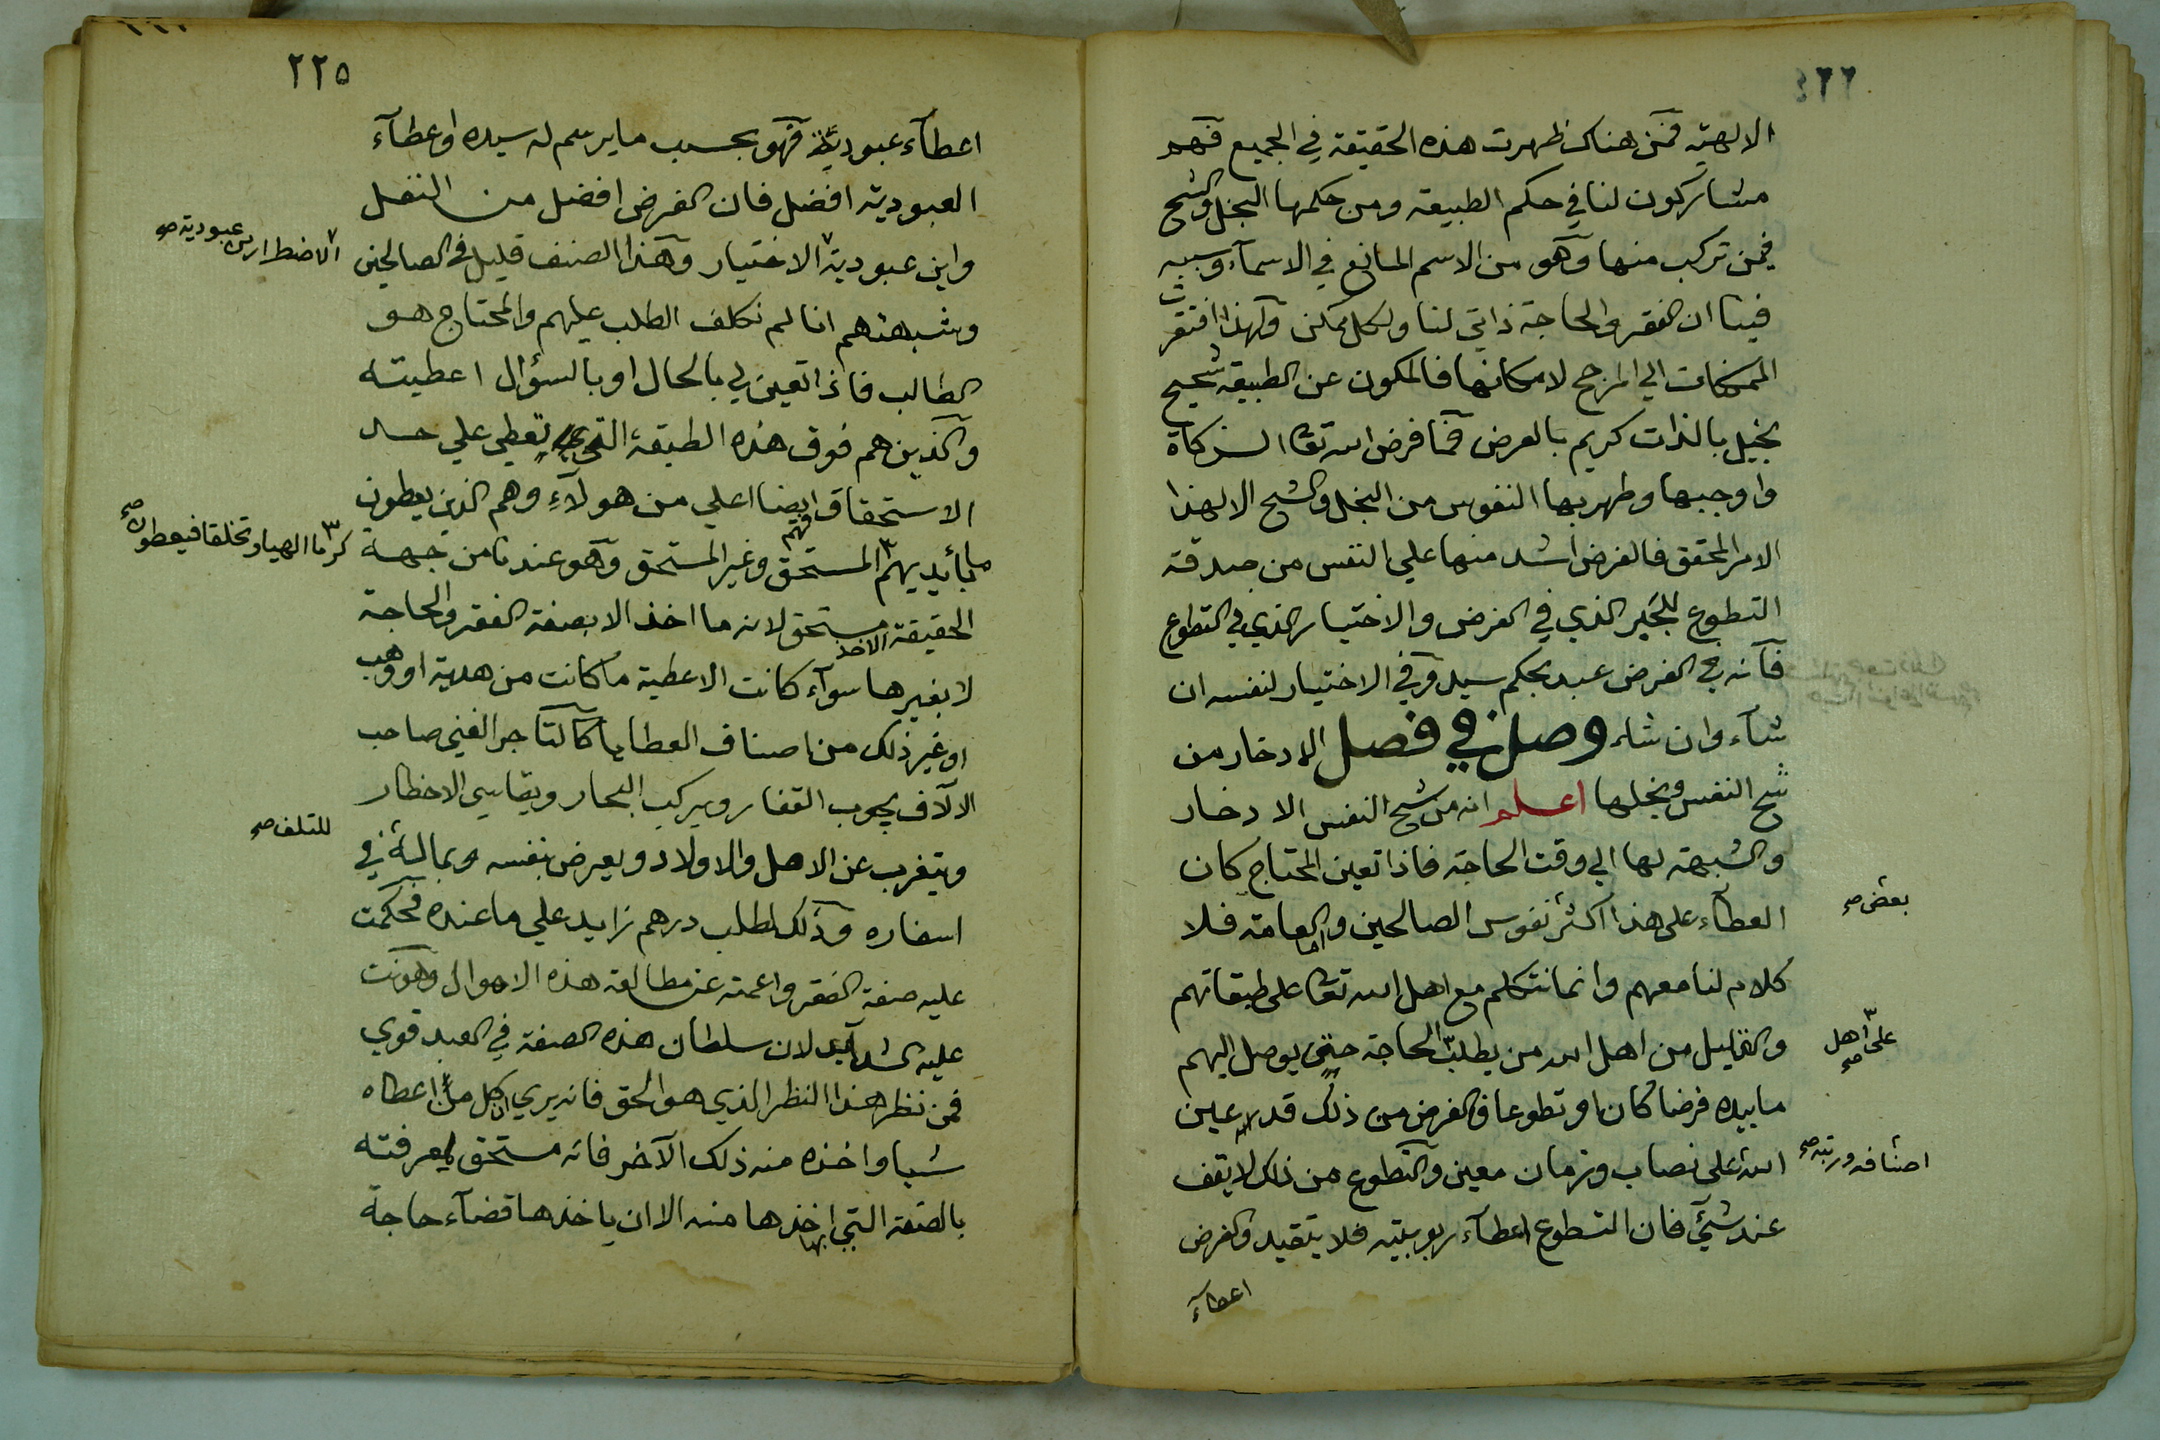 الالهية فمن هناك ظهرت هذه الحقيقة في الجميع فهم
مشاركون لنا في حكم الطبيعة ومن حكمها البخل والشح
فيمن تركب منها وهو من الاسم المانع في الاسمآء وسببه
فينا ان الفقر والحاجة ذاتي لنا ولكل ممكن ولهذا افتقرت
الممكنات الي المرجح لامكانها فالمكون عن الطبيعة شحيح
بخيل بالذات كريم بالعرض فما فرض الله تعا الزكاة
واوجبها وطهر بها النفوس من البخل والشح الا لهذا
الامر المحقق فالفرض اشد منها علي النفس من صدقة
التطوع للجبر الذي في الفرض والاختيار الذي في التطوع
فانه في الفرض عبد بحكم سيد وفي الاختيار لنفسه ان
شآء وان شاء وصل في فصل الادخار من
شح النفس وبخلها اعلم انه من شح النفس الادخار
والشبهة لها الي وقت الحاجة فاذا تعين المحتاج كان
العطآء على هذا اكثر نفوس الصالحين واما العامة فلا
بعض صح
كلام لنا معهم وانما نتكلم مع اهل الله تعا على طبقاتهم
والقليل من اهل الله من يطلب الحاجة حتى يوصل اليهم
على اهل صح
ما بيده فرضا كان او تطوعا فالفرض من ذلك قد عين
الله على نصاب وزمان معين والتطوع من ذلك لا يقف
اصنافه ورتبه صح
عند شئ فان التطوع اعطآء ربوبية فلا يتقيد والفرض
اعطآء
٢٢٥
اعطآء عبودية فهو بحسب ما يرسم له سيده واعطآء
العبودية افضل فان الفرض افضل من النفل
واين عبودية الاختيار وهذا الصنف قليل في الصالحين
الاضطرار من عبودية صح
وشبهتهم انا لم نكلف الطلب عليهم والمحتاج هو
الطالب فاذا تعين لي بالحال او بالسؤال اعطيته
والذين هم فوق هذه الطبقة التي تعطي علي حد
الاستحقاق ايضا اعلي من هولآء وهم الذين يعطون
ما بأيديهم المستحق وغير المستحق وهو عندنا من جهة
كرما الهيا وتخلقا فيعطون صح
الحقيقة الاخذ مستحق لانه ما اخذ الا بصفة الفقر والحاجة
لا بغيرها سوآء كانت الاعطية ما كانت من هدية او وهب
او غير ذلك من اصناف العطايا كالتاجر الغني صاحب
الالآف يجوب القفار ويركب البحار ويقاسي الاخطار
ويتغرب عن الاهل والاولاد ويعرض بنفسه وبماله في
للتلف صح
اسفاره وذلك لطلب درهم زايد علي ما عنده فحكمت
عليه صفة الفقر واعمته عن مطالعة هذه الاهوال وهونت
عليه الشدآيد لان سلطان هذه الصفة في العبد قوي
فمن نظر هذا النظر الذي هو الحق فانه يري ان كل من اعطاه
شيا واخذه منه ذلك الآخر فانه مستحق لمعرفته
بالصفة التي اخذها منه الا ان ياخذها قضآء حاجة
بها